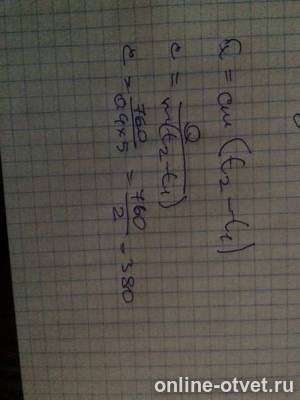 Q = cm (t₂ - t₁)
c = Q / m(t₂ - t₁)
c = 760 / 0,4×5 = 760 / 2 = 380
online-otvet.ru